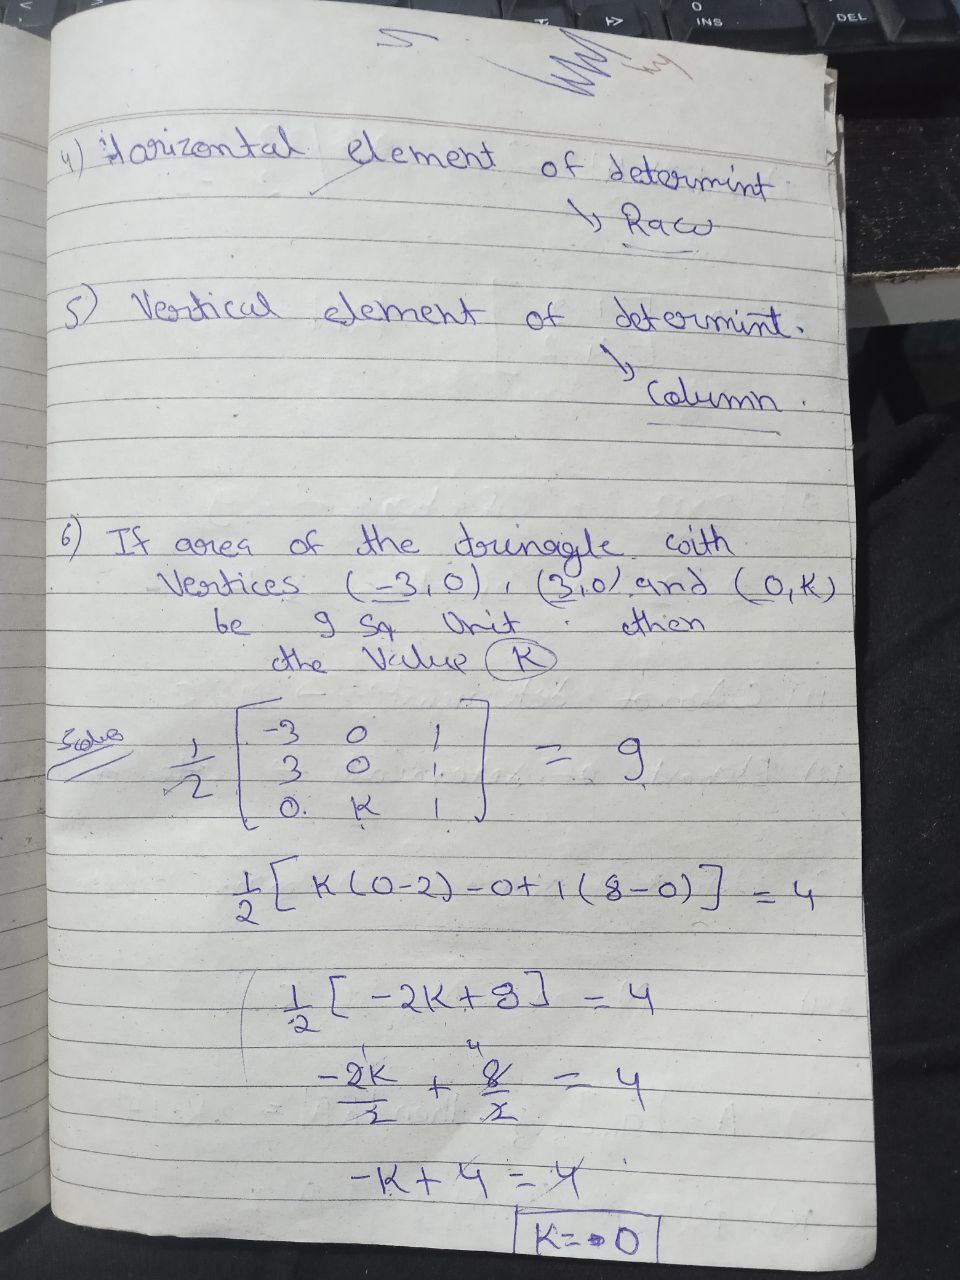 INS
DEL
4) Horizontal element of determint
↳ Raw
5) Vertical element of determint.
↳ Column.
6) If area of the trinagle with
Vertices (-3,0), (3,0) and (0,K)
be 9 Sq Unit. then
the Value K
1/2 [ -3 0 1
3 0 1
0. K 1 ] = 9
1/2 [ K(0-2)-0+1(8-0) ] = 4
1/2 [ -2K+8 ] = 4
-2K/2 + 8/2 = 4
-K+4 = 4
K = 0